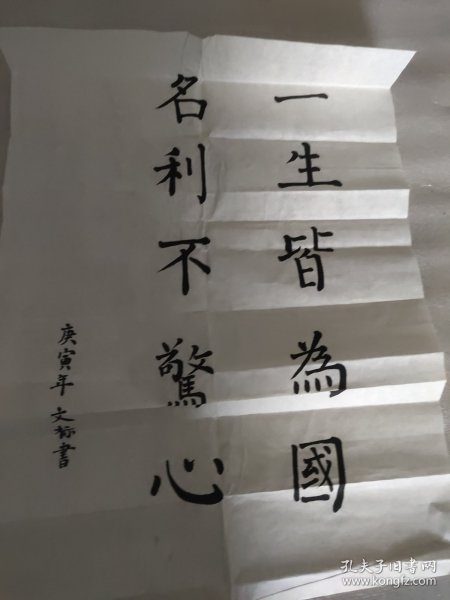 一生皆為國
名利不驚心
庚寅年 文标書
孔夫子旧書网
www.kongfz.com